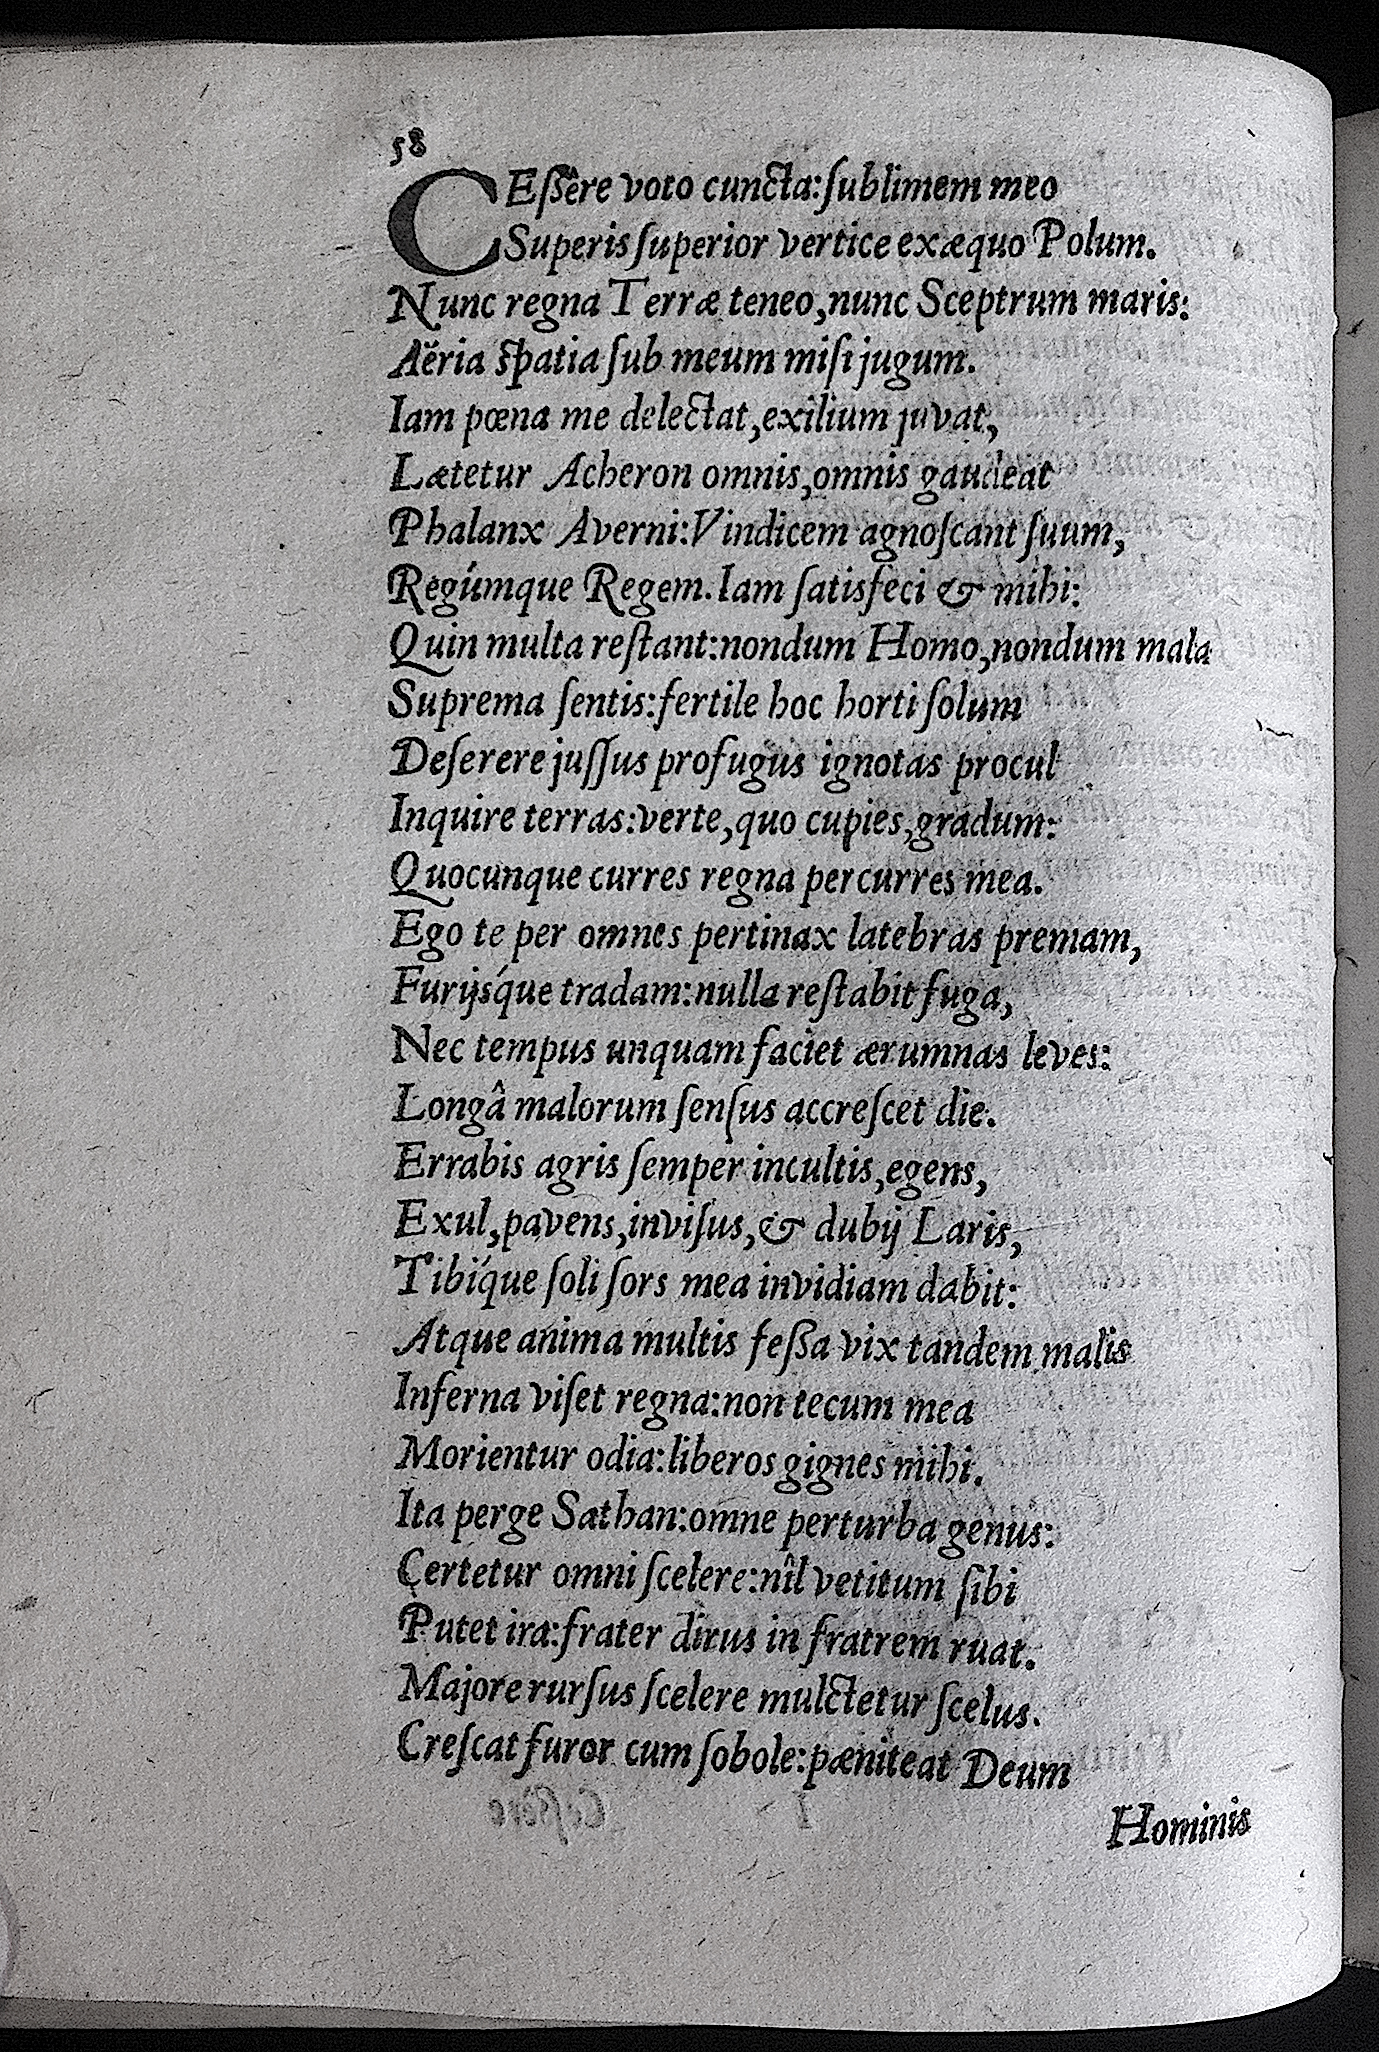 58
CEſſêre voto cuncta: ſublimem meo
Superis ſuperior vertice exæquo Polum.
Nunc regna Terræ teneo, nunc Sceptrum maris:
Aëria ſpatia ſub meum miſi jugum.
Iam pœna me delectat, exilium juvat,
Lætetur Acheron omnis, omnis gaudeat
Phalanx Averni: Vindicem agnoſcant ſuum,
Regúmque Regem. Iam ſatisfeci & mihi:
Quin multa reſtant: nondum Homo, nondum mala
Suprema ſentis: fertile hoc horti ſolum
Deſerere juſſus profugus ignotas procul
Inquire terras: verte, quo cupies, gradum:
Quocunque curres regna percurres mea.
Ego te per omnes pertinax latebras premam,
Furijsque tradam: nulla reſtabit fuga,
Nec tempus unquam faciet ærumnas leves:
Longâ malorum ſenſus accreſcet die.
Errabis agris ſemper incultis, egens,
Exul, pavens, inviſus, & dubij Laris,
Tibíque ſoli ſors mea invidiam dabit:
Atque anima multis feſſa vix tandem malis
Inferna viſet regna: non tecum mea
Morientur odia: liberos gignes mihi.
Ita perge Sathan: omne perturba genus:
Certetur omni ſcelere: nîl vetitum ſibi
Putet ira: frater dirus in fratrem ruat.
Majore rurſus ſcelere mulctetur ſcelus.
Creſcat furor cum ſobole: pæniteat Deum
Hominis